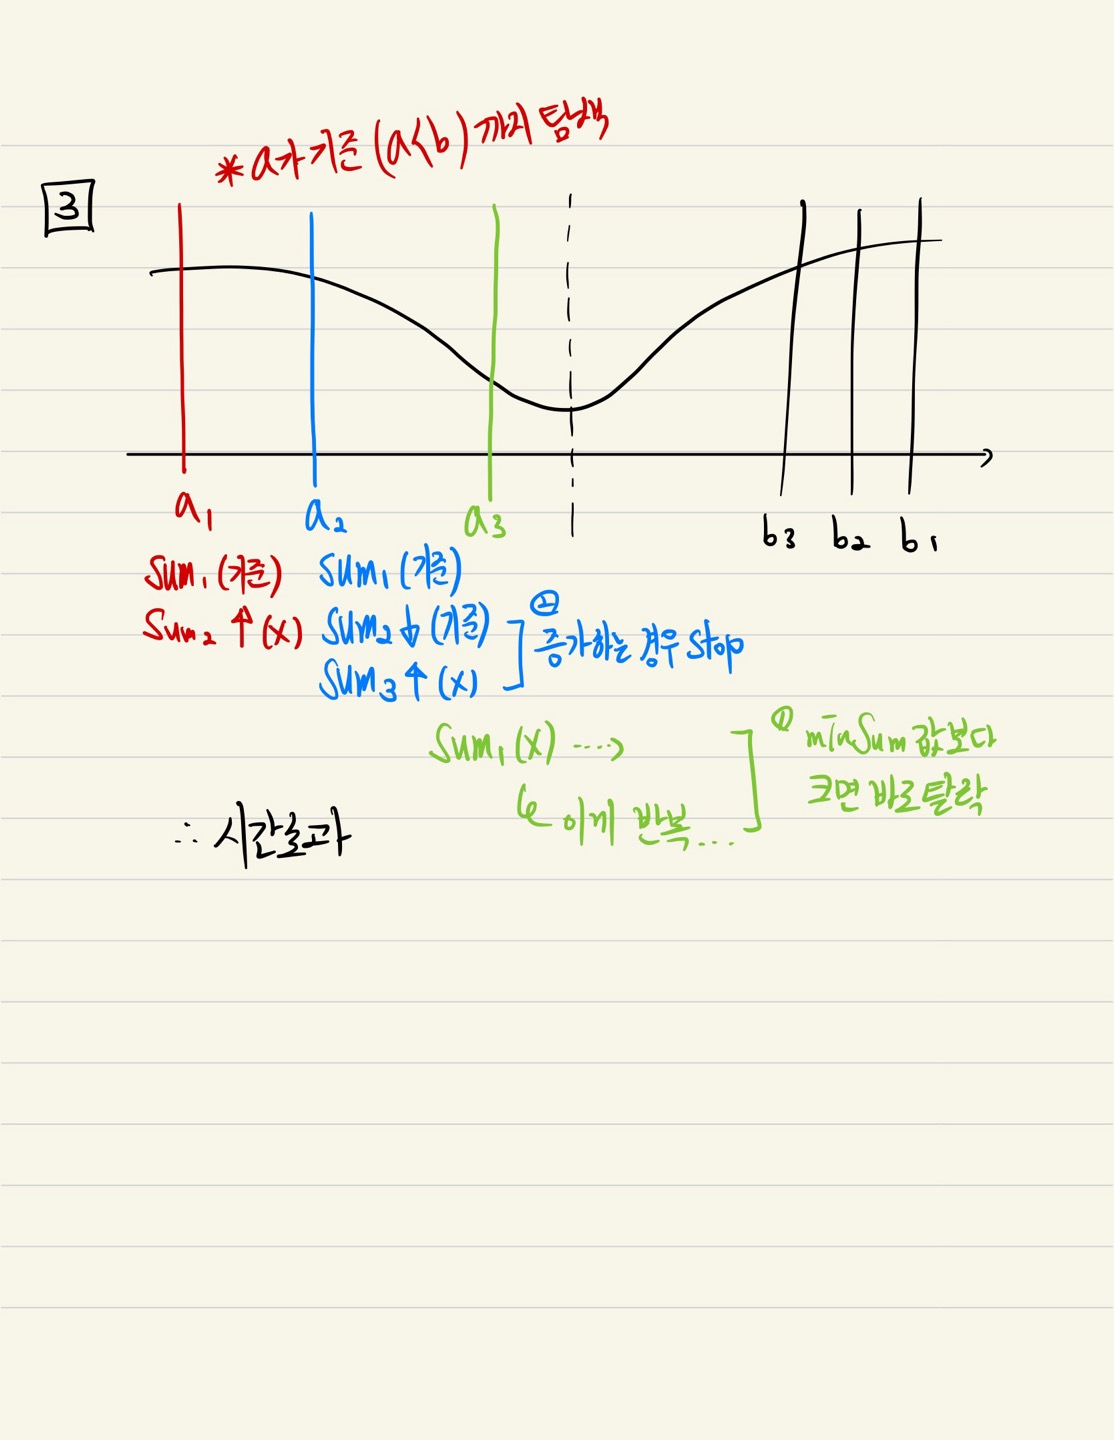 * a가 기준 (a<b) 까지 탐색
3
a1 a2 a3 b3 b2 b1
Sum1 (기준) Sum1 (기준)
Sum2 ↑ (x) Sum2 ↓ (기준) ② 증가하는 경우 stop
Sum3 ↑ (x)
Sum1 (x) ····> ① minSum 값보다
크면 바로 탈락
↳ 이게 반복...
∴ 시간초과